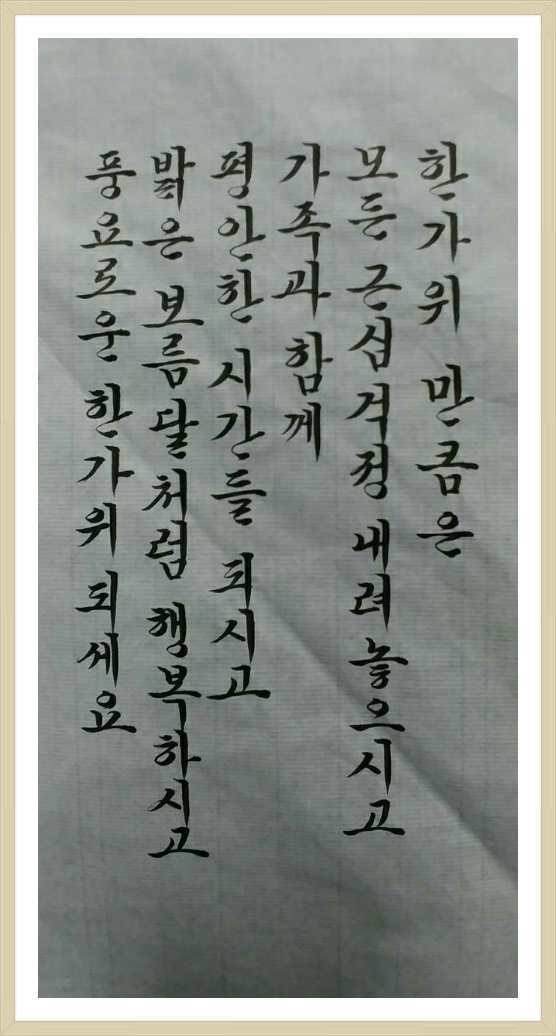 한가위 만큼은
모든 근심걱정 내려놓으시고
가족과 함께
평안한 시간들 되시고
밝은 보름달처럼 행복하시고
풍요로운 한가위 되세요